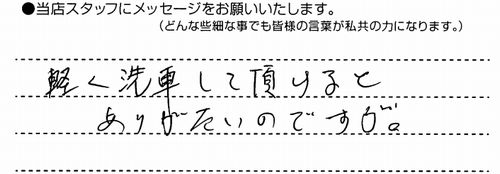 ●当店スタッフにメッセージをお願いいたします。
（どんな些細な事でも皆様の言葉が私共の力になります。）
軽く洗車して頂けると
ありがたいのですが。